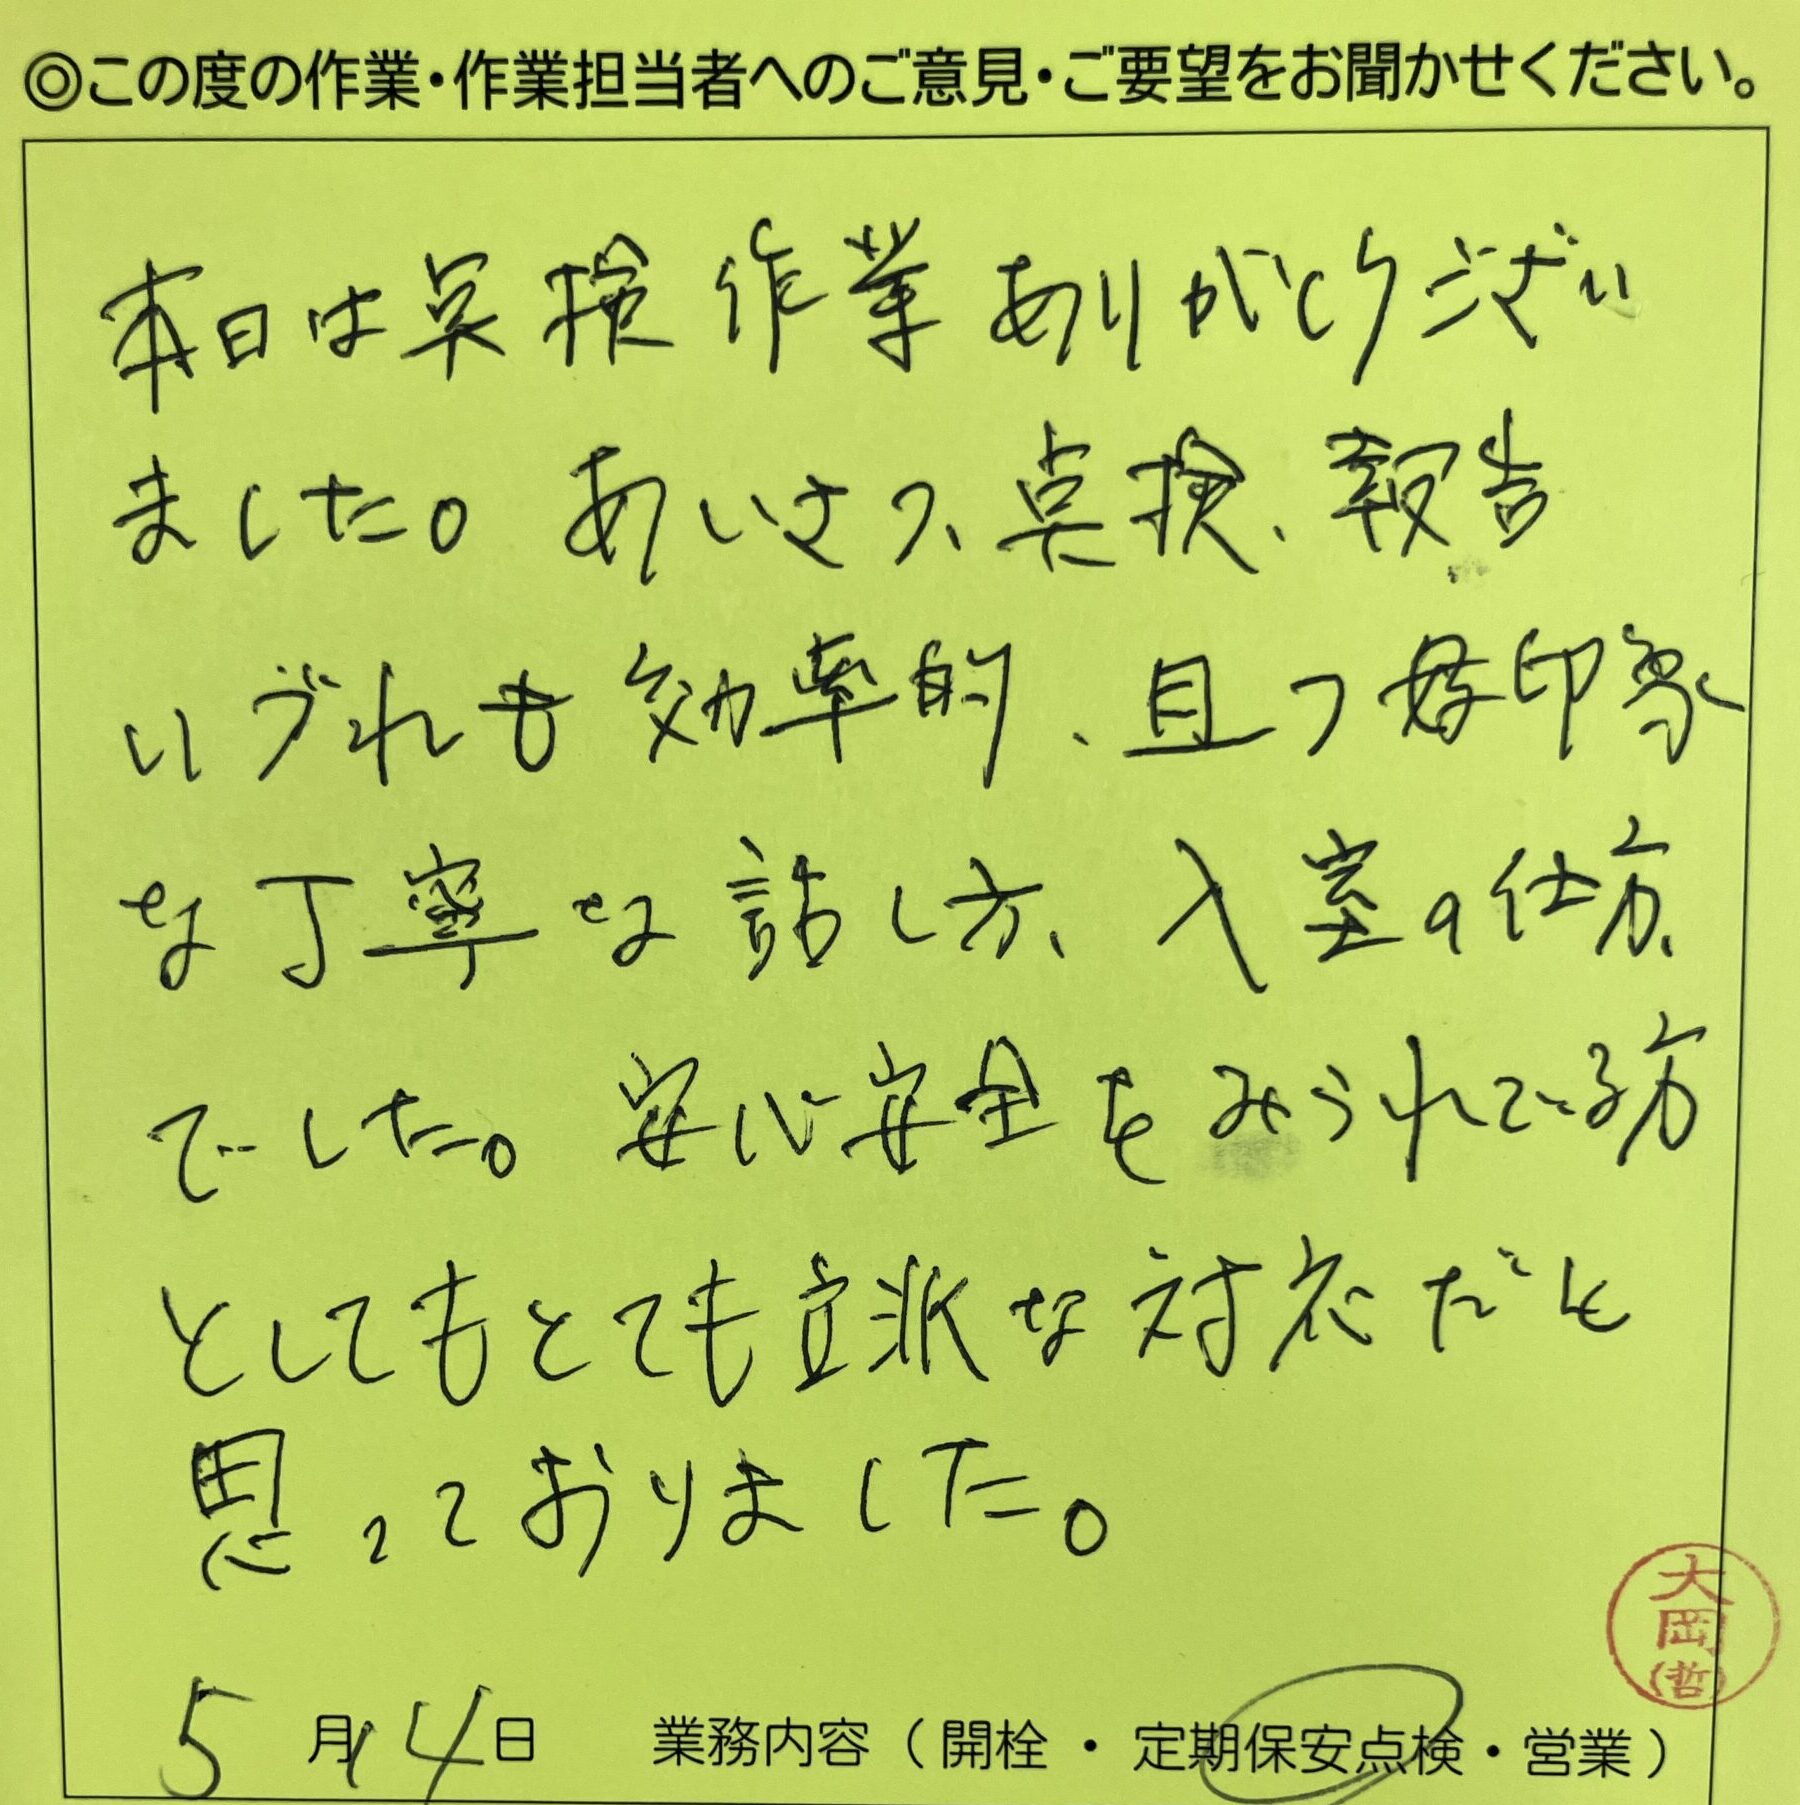 ◎この度の作業・作業担当者へのご意見・ご要望をお聞かせください。
本日は点検作業ありがとうござい
ました。あいさつ、点検、報告
いづれも効率的、且つ好印象
な丁寧な話し方、入室の仕方、
でした。安心安全をみられている方
としてもとても立派な対応だと
思っておりました。
大岡(哲)
5月14日 業務内容（開栓・定期保安点検・営業）